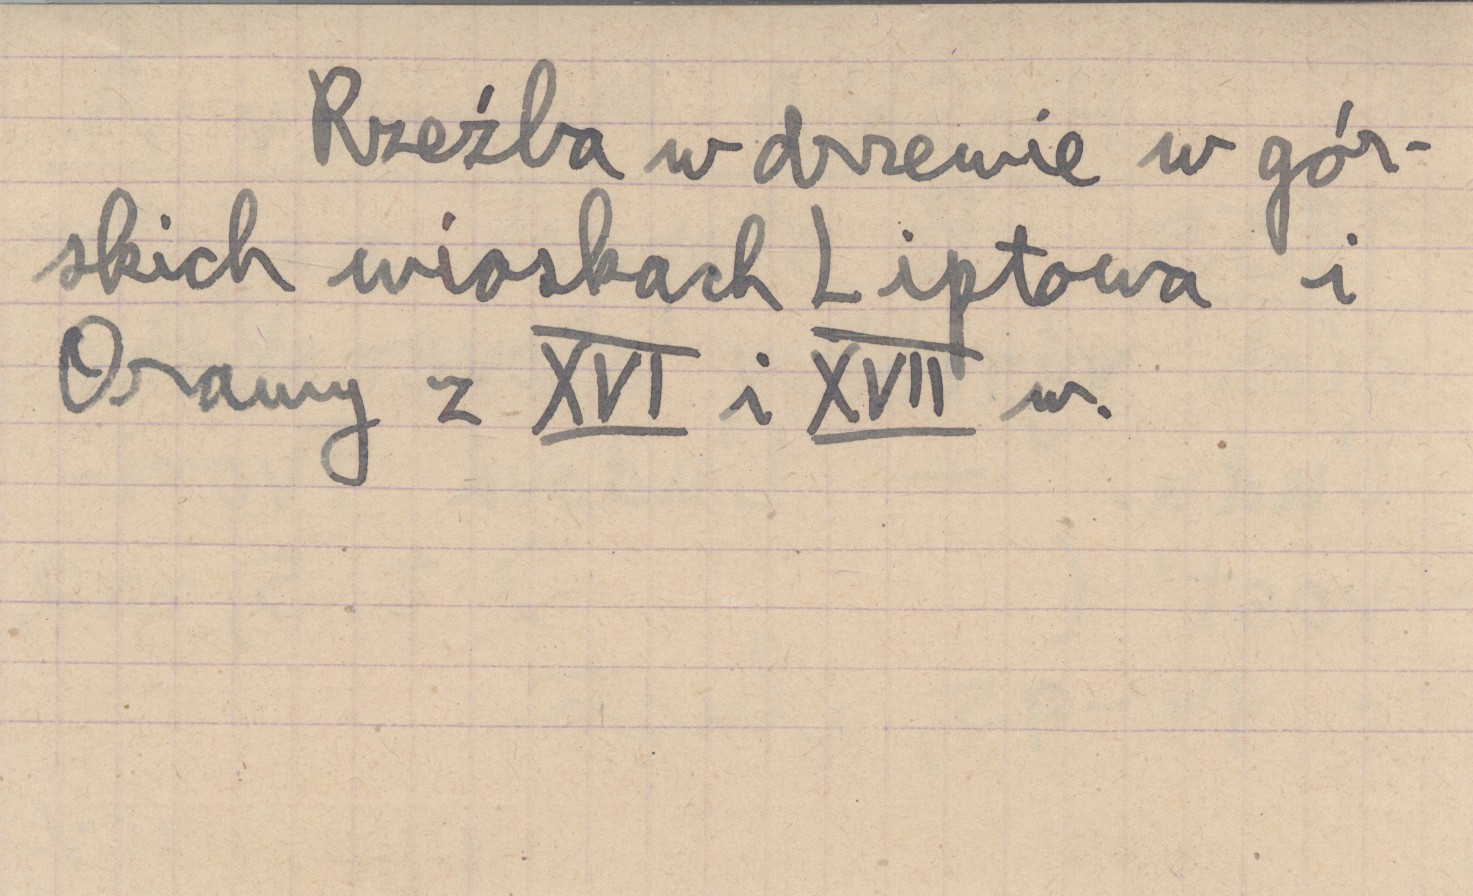 Rzeźba w drzewie w gór-
skich wioskach Liptowa i
Orawy z XVI i XVII w.